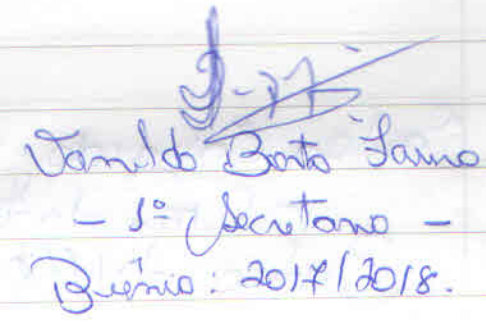 Vanildo Bento Farino
- 1º Secretario -
Biênio: 2017/2018.